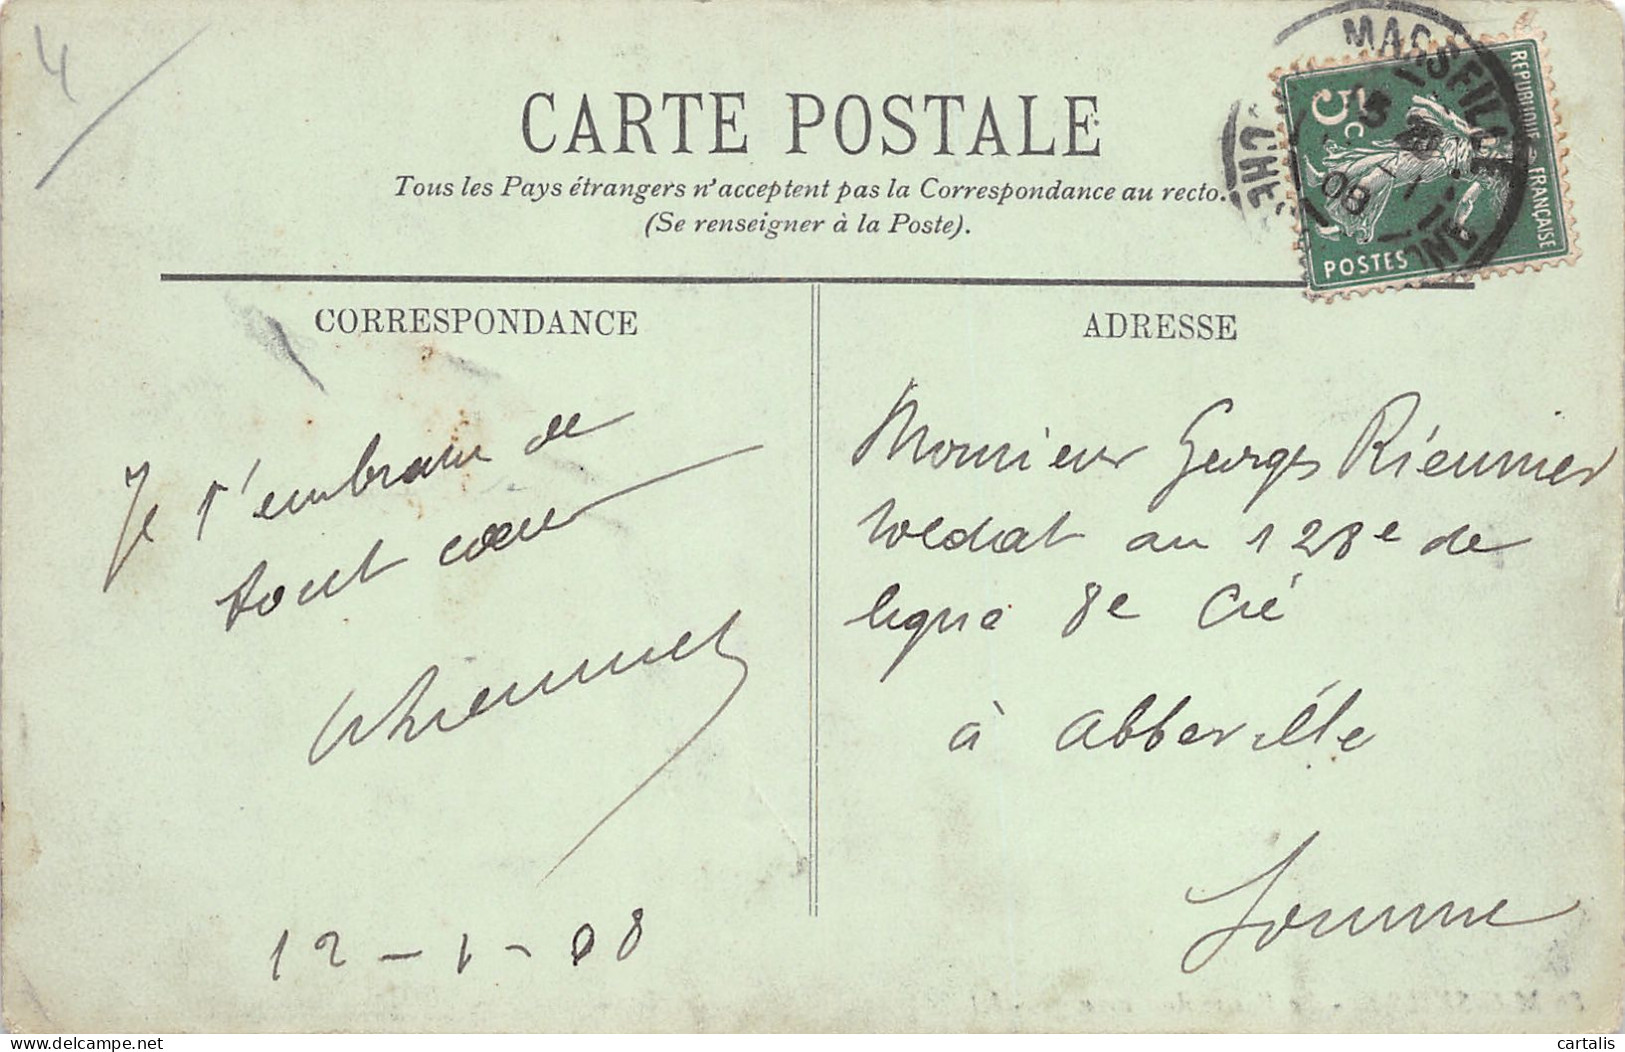 4
CARTE POSTALE
Tous les Pays étrangers n'acceptent pas la Correspondance au recto.
(Se renseigner à la Poste).
MARSEILLE
5 c
REPUBLIQUE FRANÇAISE
POSTES
08
CORRESPONDANCE
ADRESSE
Je t'embrasse de
tout cœur
12 - 1 - 08
Monsieur Georges Riennier
soldat au 128e de
ligne 8e Cie
à Abbeville
Somme
delcampe.net
cartalis